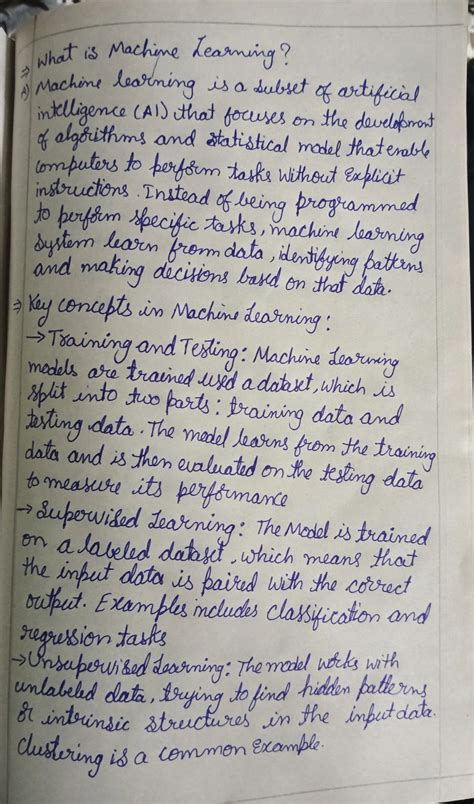 ⇒ What is Machine Learning?
A) Machine learning is a subset of artificial
intelligence (AI) that focuses on the development
of algorithms and statistical model that enable
computers to perform tasks without Explicit
instructions. Instead of being programmed
to perform specific tasks, machine learning
system learn from data, identifying patterns
and making decisions based on that data.
⇒ Key concepts in Machine Learning:
→ Training and Testing: Machine Learning
models are trained used a dataset, which is
split into two parts: training data and
testing data. The model learns from the training
data and is then evaluated on the testing data
to measure its performance
→ Supervised Learning: The Model is trained
on a labeled dataset, which means that
the input data is paired with the correct
output. Examples includes classification and
regression tasks
→ Unsupervised Learning: The model works with
unlabeled data, trying to find hidden patterns
or intrinsic structures in the input data.
clustering is a common Example.